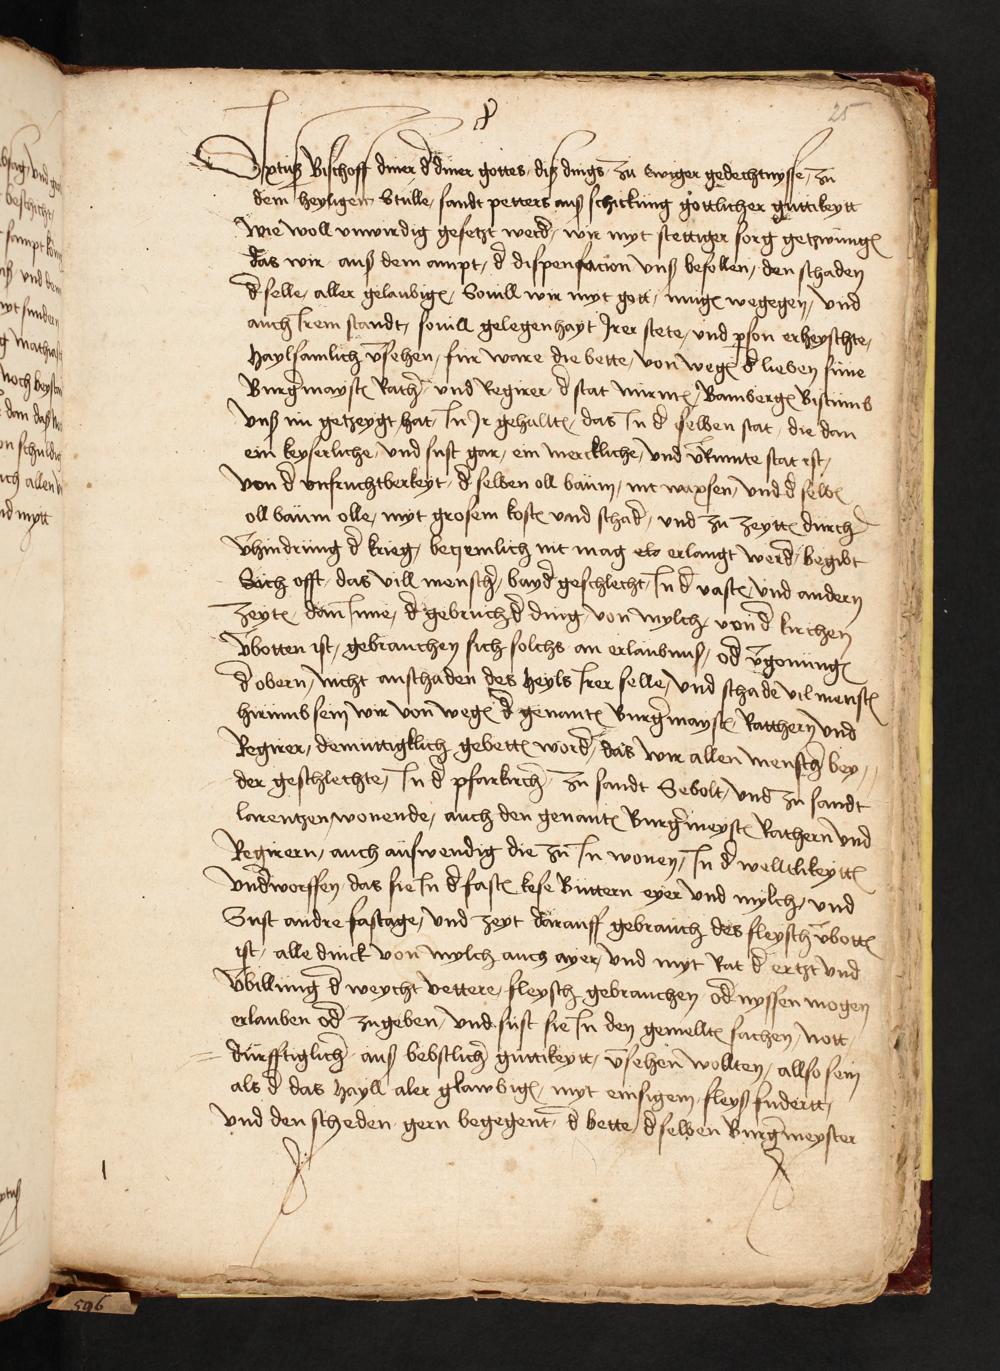 25
Sixtuß Bischoff diner d̄ diner gottes, diß dings zu ewiger gedechtnysse, zu
dem heyligen Stulle, sandt petters auß schickung gotlicher guttikeytt
wie woll unwirdig gesetzt werd̄, wir myt stettiger sorg getzwungē
das wir auß dem ampt, d̄ dispensacion vnß befollen, den schaden
d̄ selle, aller gelaubigē, Souill wir myt gott, mugē wegegen, vnd
auch Irem standt, souill gelegenhayt Irer stete, vnd pson erheyschte,
haylsamlich v̄sehen, fur ware die bette, von wegē d̄ lieben süne
Burḡmaystē Rath̄ vnd Regirer d̄ stat nürmē, Bambergē Bistumb
vnß nü getzeygt hat, In Ir gehalltē, das In d̄ selben stat, die dan
ein keyserliche, vnd sust gar, ein merckliche, vnd v̄kunte stat ist,
von d̄ vnfruchtberkeyt, d̄ selben oll baum, nit wapsen, vnd d̄ selbē
oll baum olle, myt grosem kostē vnd schad̄, vnd zu zeyttē durch
v̄hindrung d̄ krieg, betzemlich nit mag erlangt werd̄, begibt
Sich offt, das vill mensch̄, bayd̄ geschlecht, In d̄ vastē, vnd andern
zeytē, dan Inne, d̄ gebruch d̄ ding, von mylch, von d̄ kirchen
v̄botten ist, gebrauchen sich solchs an erlaubnus, od̄ v̄gonungē
d̄ obern, nicht anschaden des heyls Irer selle, vnd schade vil menstē
hirumb sein wir von wegē d̄ genantē Burḡmaystē Ratthern vnd
Regirer, demuttigklich gebettē word̄, das wir allen mensch̄ bey,,
der geschlechte, In d̄ pfarkirch̄ zu sandt Sebolt, vnd zu sandt
larentzen, wonende, auch den genantē Burḡmeystē Rathern vnd
Regirern, auch auswendig die zu In wonen, In d̄ welltlikeyttē
vnd̄worffen, das sie In d̄ fastē kese Buttern eyer vnd mylch, vnd
Sust andre fastage, vnd zeyt darauff gebrauch des fleysch v̄bottē
ist, alle dinck von mylch auch ayer, vnd myt Rat d̄ ertzt vnd
v̄billung d̄ weycht vettere, fleysch gebrauchen od̄ nyssen mogen
erlauben od̄ zugeben, vnd sust sie In den gemelltē sachen, nott,
durfftiglich̄ auß bebstlich̄ guttikeytt, v̄sehen wollten, allso sein
als d̄ das hayll aler glawbigē, myt einsigem fleyß fudertt,
vnd den scheden gern begegent, d̄ bette, d̄ selben Burḡmeyster
596